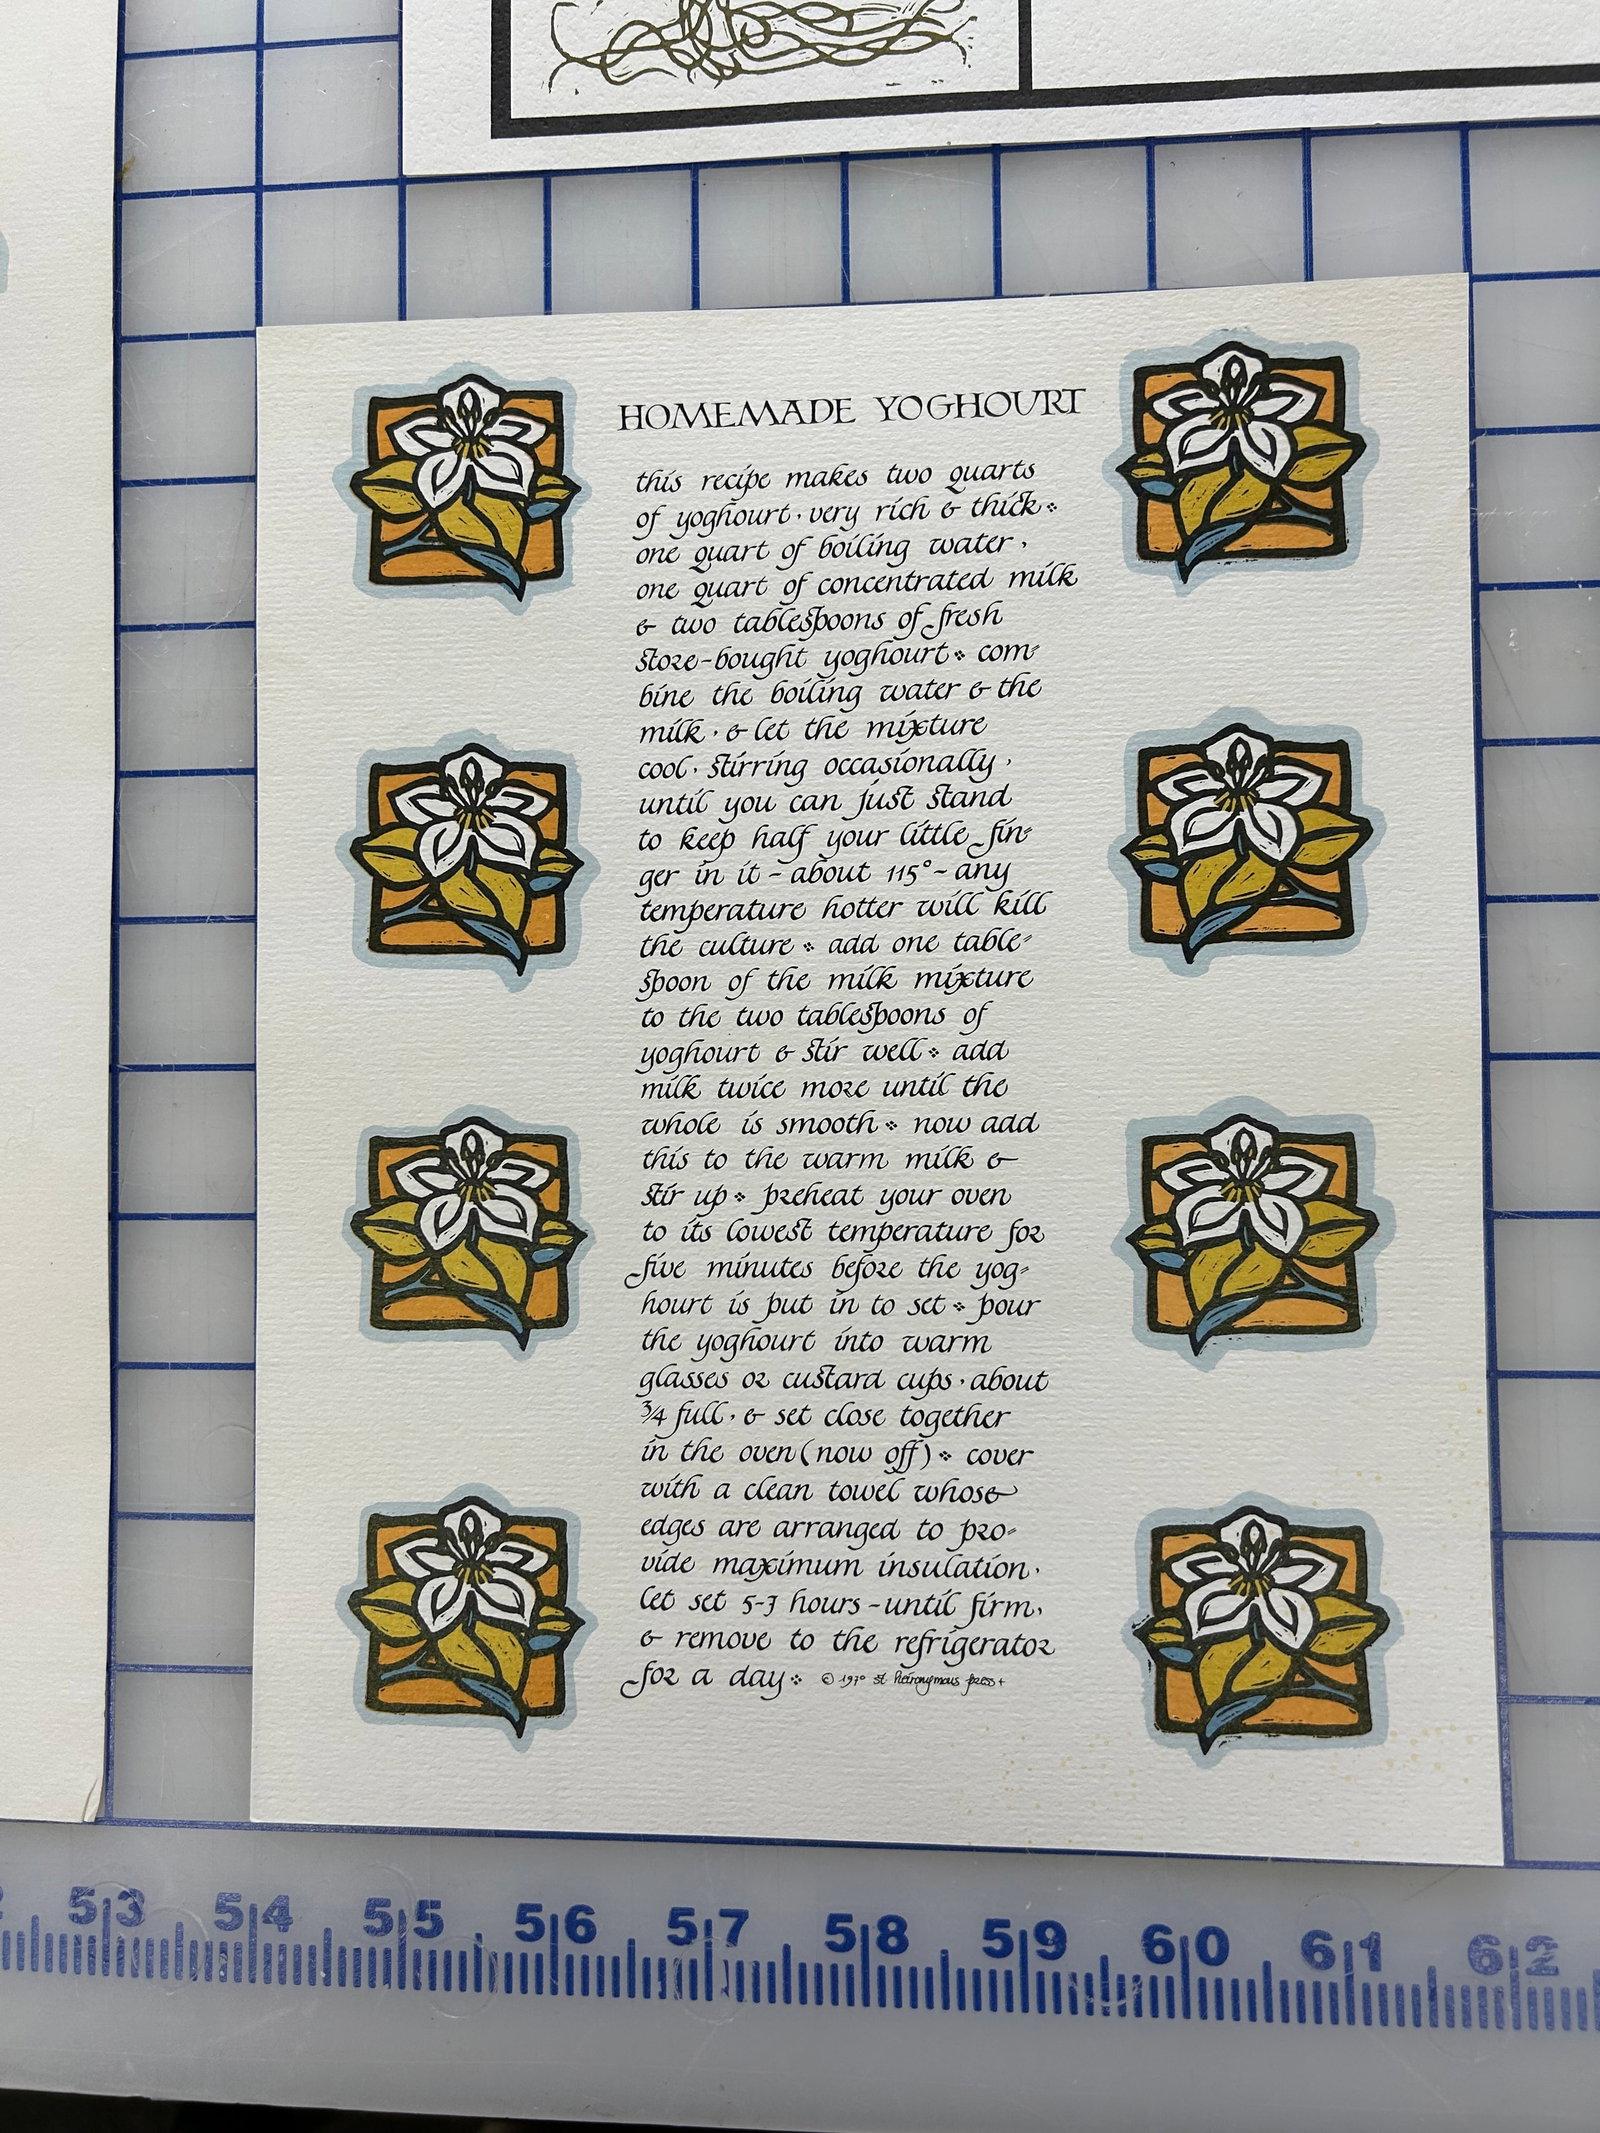 HOMEMADE YOGHOURT
this recipe makes two quarts
of yoghourt · very rich & thick ❖
one quart of boiling water ,
one quart of concentrated milk
& two tablespoons of fresh
store-bought yoghourt ❖ com-
bine the boiling water & the
milk · & let the mixture
cool · stirring occasionally ,
until you can just stand
to keep half your little fin-
ger in it - about 115° - any
temperature hotter will kill
the culture ❖ add one table-
spoon of the milk mixture
to the two tablespoons of
yoghourt & stir well ❖ add
milk twice more until the
whole is smooth ❖ now add
this to the warm milk &
stir up ❖ preheat your oven
to its lowest temperature for
five minutes before the yog-
hourt is put in to set ❖ pour
the yoghourt into warm
glasses or custard cups · about
3/4 full , & set close together
in the oven (now off) ❖ cover
with a clean towel whose
edges are arranged to pro-
vide maximum insulation ·
let set 5-7 hours - until firm ,
& remove to the refrigerator
for a day ❖ © 1970 st hieronymous press +
53 54 55 56 57 58 59 60 61 62